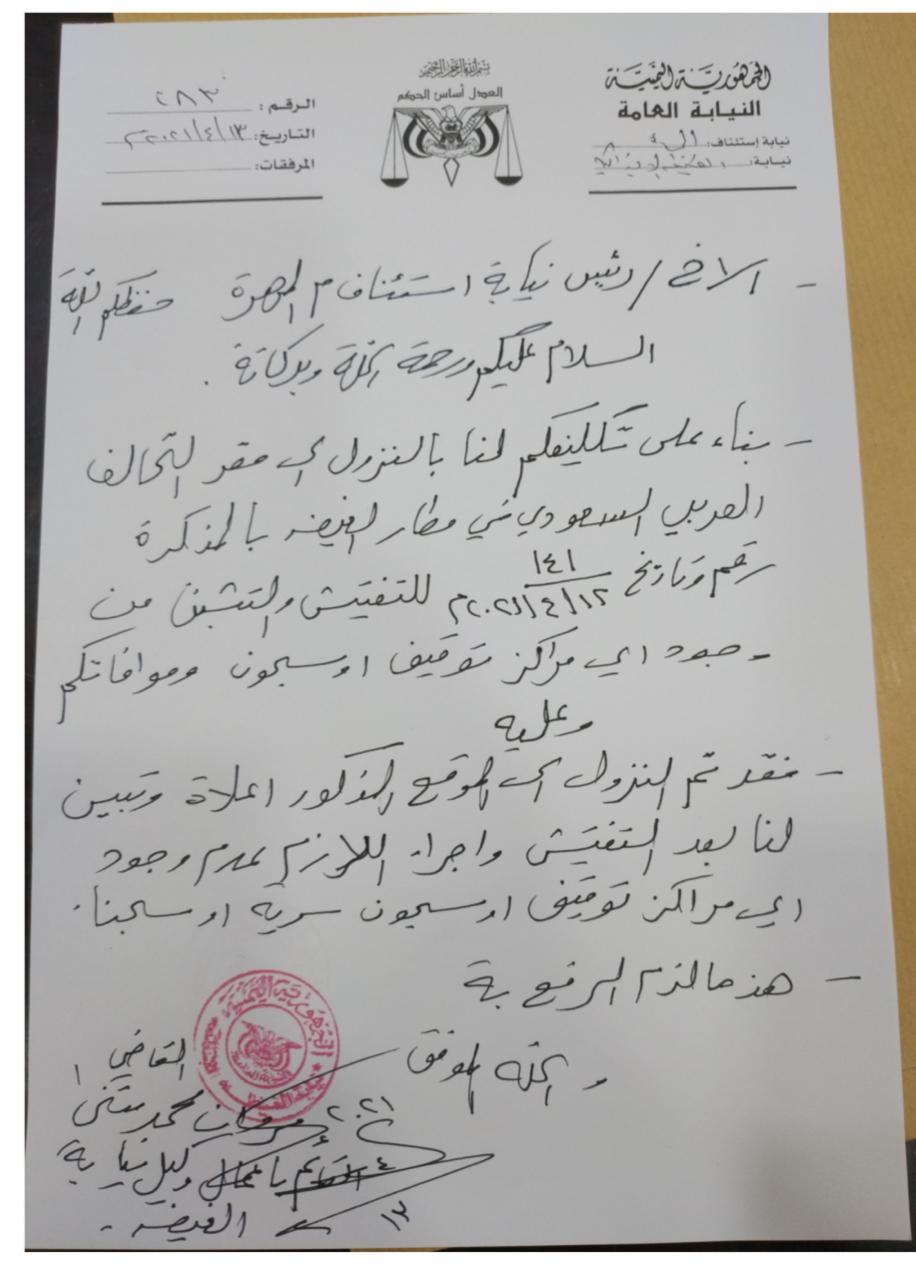 الجمهورية اليمنية
النيابة العامة
نيابة إستئناف:
نيابة: الغيضة الابتدائية
بسم الله الرحمن الرحيم
العدل أساس الحكم
الرقم: ٢٨٣
التاريخ: ١٣/٤/٢٠٢١م
المرفقات:
- الاخ/ رئيس نيابة استئناف م المهرة حفظكم الله
السلام عليكم ورحمة الله وبركاتة .
- بناء على تكليفكم لنا بالنزول الى مقر التحالف
العربي السعودي في مطار الغيضه بالمذكرة
رقم وتاريخ ١٤١ ١٢/٤/٢٠٢١م للتفتيش والتثبت من
وجود اي مراكز توقيف او سجون وموافاتكم
وعليه
- فقد تم النزول الى الموقع المذكور اعلاة وتبين
لنا بعد التفتيش واجراء اللازم عدم وجود
اي مراكز توقيف او سجون سرية او سجناء.
- هذ مالزم الرفع بة
و الله الموفق
القاضي /
محمد مثنى
٢٠٢١
القائم باعمال وكيل نيابة
٤
الغيضه -
١٣